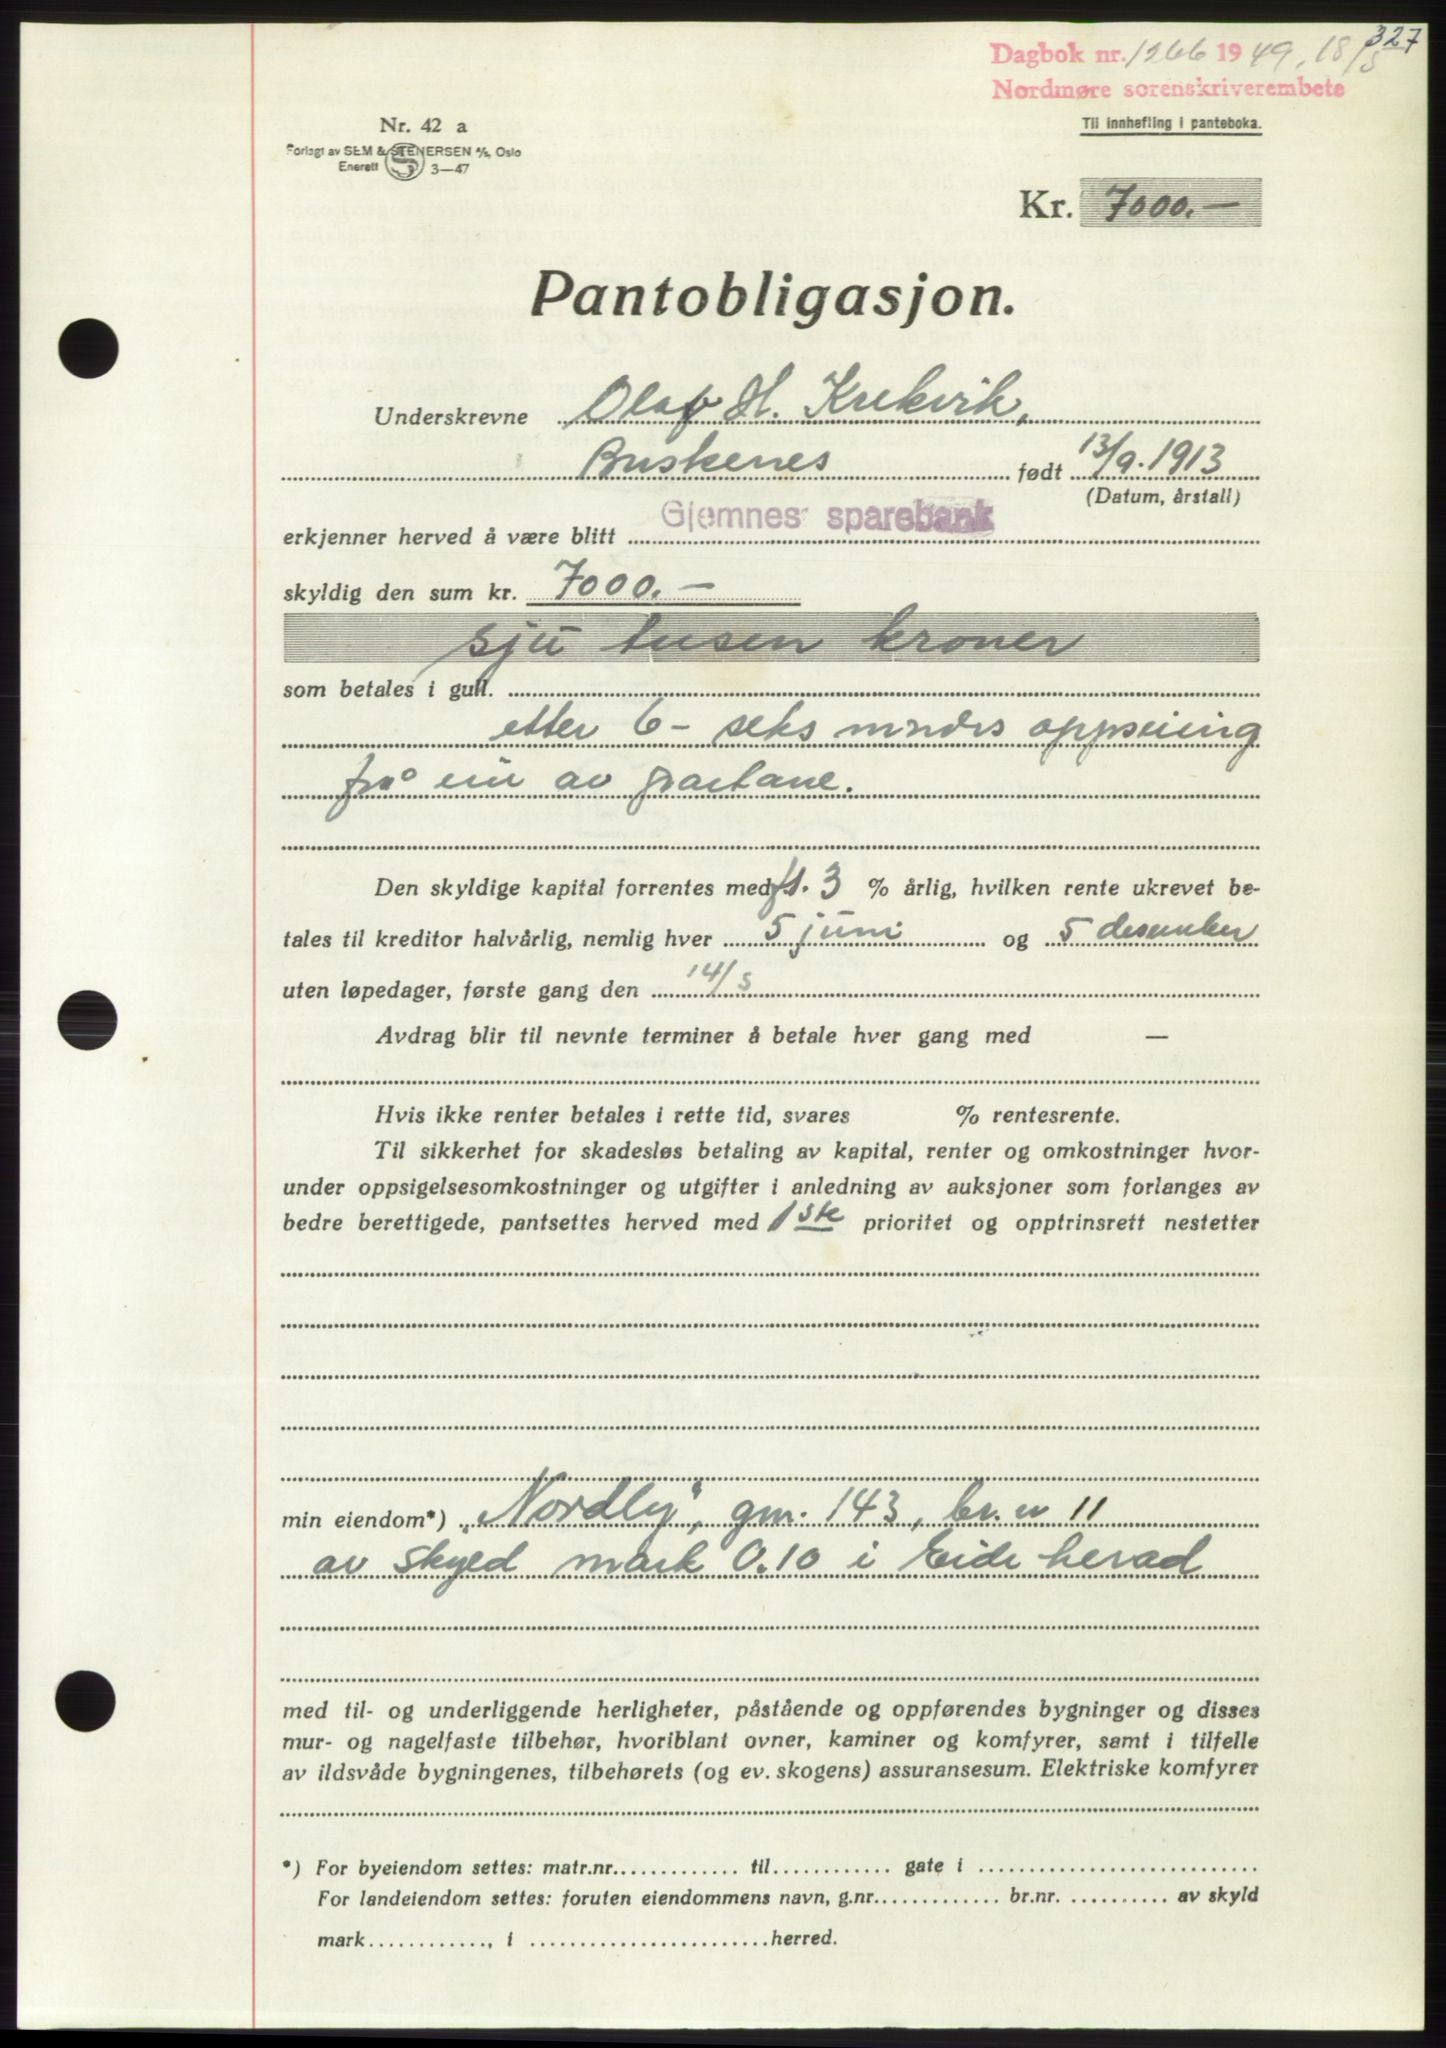 327
Dagbok nr. 1266 1949, 18/5
Nordmøre sorenskriverembete
Til innhefting i panteboka.
Nr. 42 a
Forlagt av SEM & STENERSEN A/S, Oslo
Enerett 3—47
Kr. 7000.—
Pantobligasjon.
Underskrevne Olaf H. Krekvik,
Buskenes født 13/9. 1913
(Datum, årstall)
erkjenner herved å være blitt Gjemnes sparebank
skyldig den sum kr. 7000.—
sju tusen kroner
som betales i gull.
etter 6 - seks mndrs oppseiing
frå ein av partane.
Den skyldige kapital forrentes med f.t. 3 % årlig, hvilken rente ukrevet be-
tales til kreditor halvårlig, nemlig hver 5 juni og 5 desember
uten løpedager, første gang den 14/5
Avdrag blir til nevnte terminer å betale hver gang med —
Hvis ikke renter betales i rette tid, svares % rentesrente.
Til sikkerhet for skadesløs betaling av kapital, renter og omkostninger hvor-
under oppsigelsesomkostninger og utgifter i anledning av auksjoner som forlanges av
bedre berettigede, pantsettes herved med 1ste prioritet og opptrinsrett nestetter
min eiendom*) „Nordly", gnr. 143, br. nr 11
av skyld mark 0.10 i Eide herad
med til- og underliggende herligheter, påstående og oppførendes bygninger og disses
mur- og nagelfaste tilbehør, hvoriblant ovner, kaminer og komfyrer, samt i tilfelle
av ildsvåde bygningenes, tilbehørets (og ev. skogens) assuransesum. Elektriske komfyrer
*) For byeiendom settes: matr.nr............. til............ gate i ............................
For landeiendom settes: foruten eiendommens navn, g.nr............. br.nr. .......... av skyld
mark............, i ........................herred.